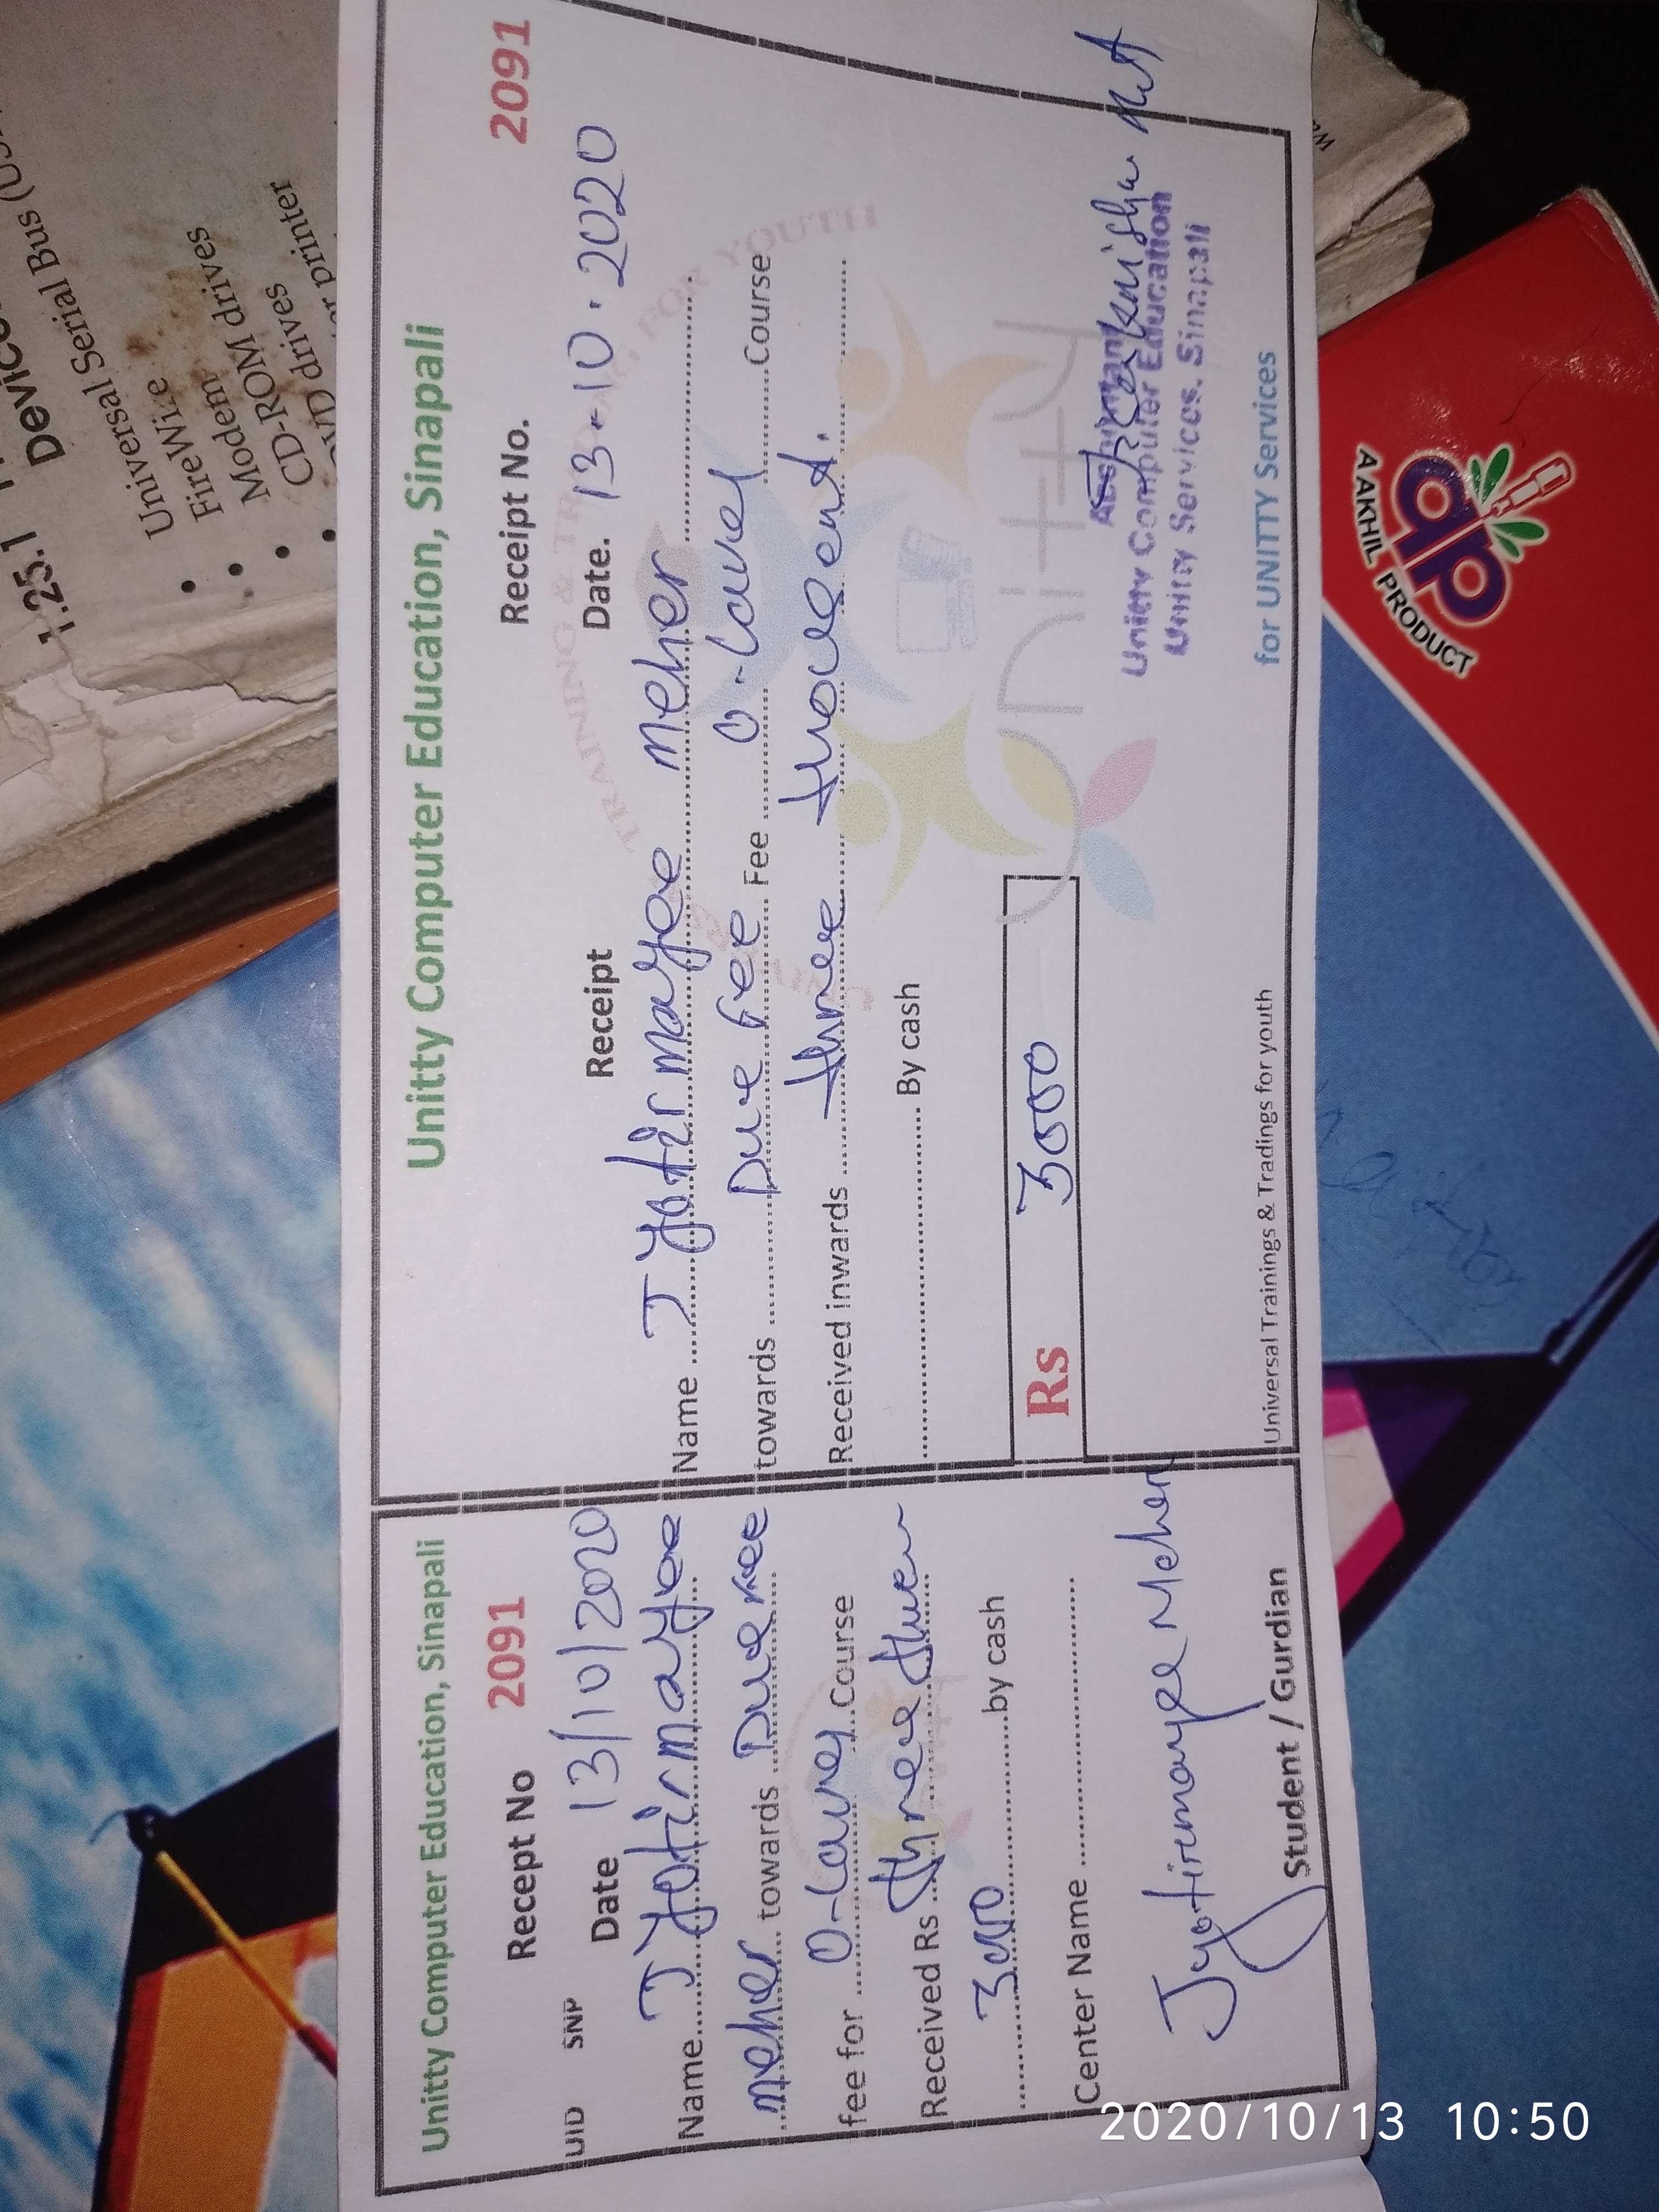 1.25.1
Universal Serial Bus
FireWire
Modem
CD-ROM drives
DVD drives
printer
Unitty Computer Education, Sinapali
Recept No 2091
UID SNP Date 13/10/2020
Name J Jyotirmayee
meher towards Due Fee
fee for O-Level Course
Received Rs three
3000 by cash
Center Name
Jyotirmayee Meher
Student / Gurdian
Unitty Computer Education, Sinapali
Receipt No. 2091
Receipt Date. 13-10.2020
Name J Jyotirmayee meher
towards Due Fee Fee O-Level Course
Received inwards three thousand.
By cash
Rs 3000
Unitty Computer Education
Unitty Services, Sinapali
Universal Trainings & Tradings for youth for UNITTY Services
AAKHIL PRODUCT
ap
2020/10/13 10:50